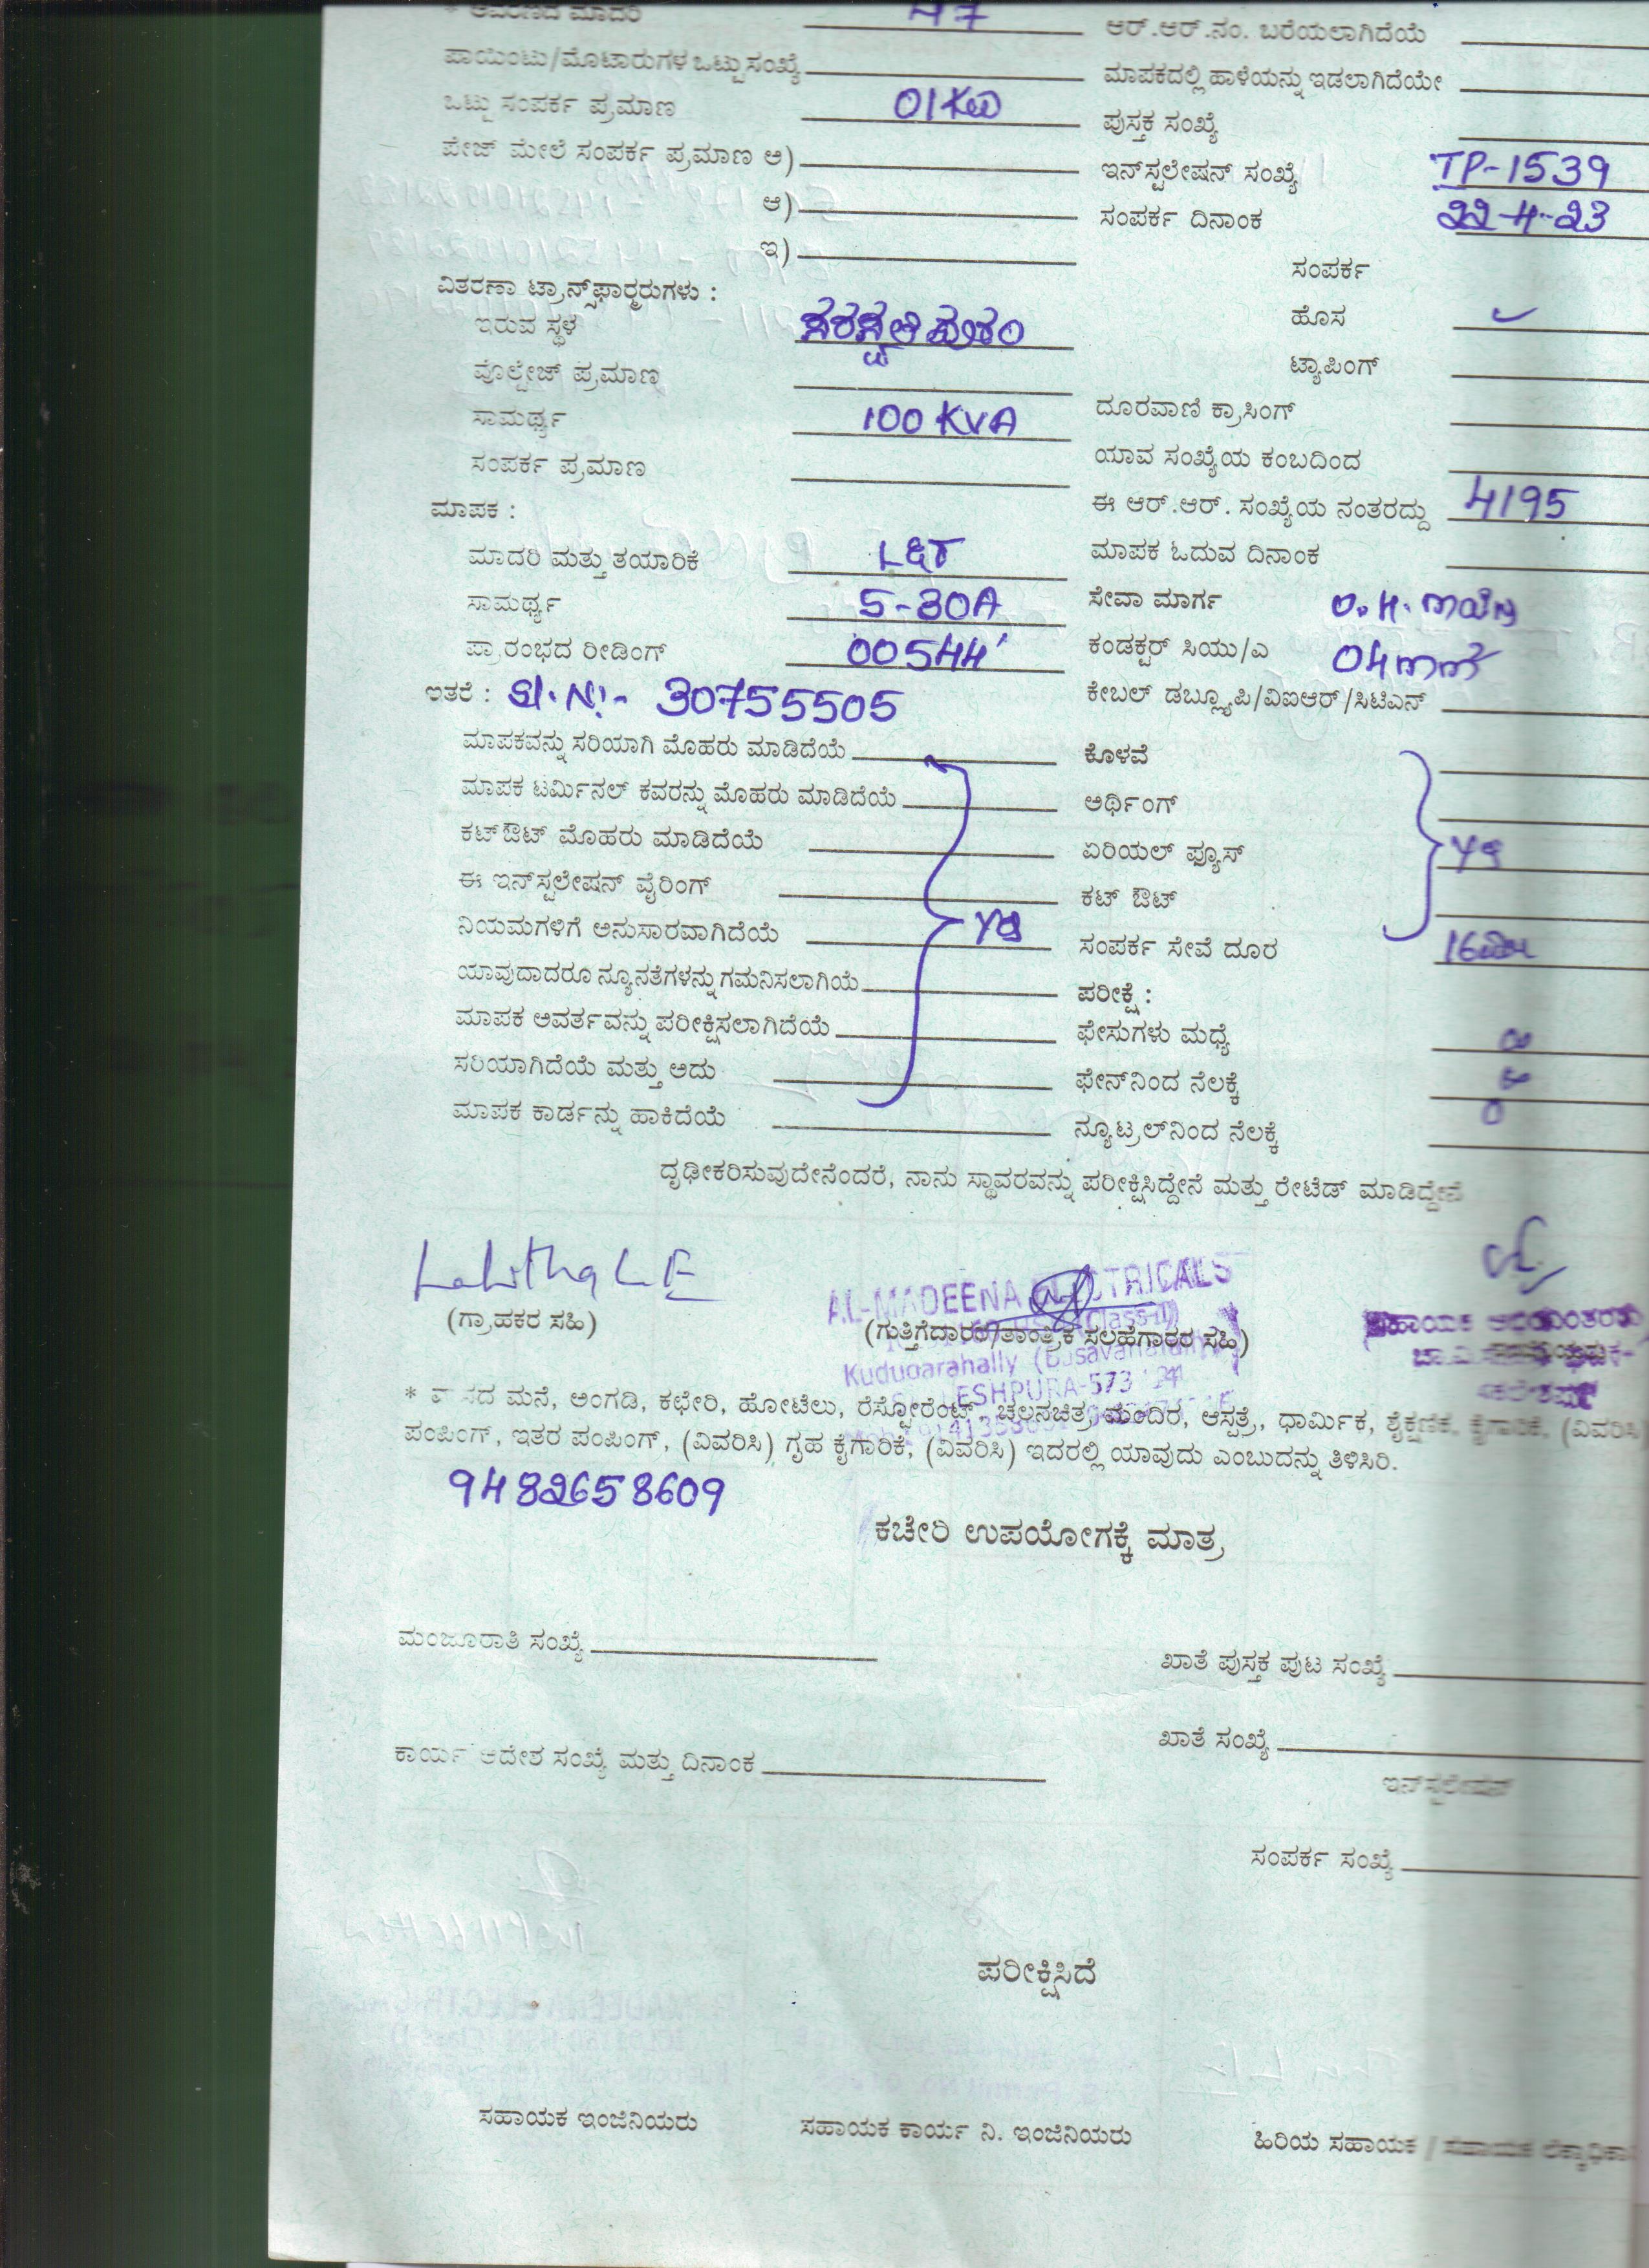 * ಆವರಣದ ಮಾದರಿ
ಆರ್.ಆರ್.ನಂ. ಬರೆಯಲಾಗಿದೆಯೆ
ಪಾಯಿಂಟು/ಮೊಟಾರುಗಳ ಒಟ್ಟುಸಂಖ್ಯೆ
ಮಾಪಕದಲ್ಲಿ ಹಾಳೆಯನ್ನು ಇಡಲಾಗಿದೆಯೇ
ಒಟ್ಟು ಸಂಪರ್ಕ ಪ್ರಮಾಣ 01 KW
ಪುಸ್ತಕ ಸಂಖ್ಯೆ
ಪೇಜ್ ಮೇಲೆ ಸಂಪರ್ಕ ಪ್ರಮಾಣ ಅ)
ಇನ್‌ಸ್ಟಲೇಷನ್ ಸಂಖ್ಯೆ TP-1539
ಆ)
ಸಂಪರ್ಕ ದಿನಾಂಕ 22-4-23
ಇ)
ಸಂಪರ್ಕ
ವಿತರಣಾ ಟ್ರಾನ್ಸ್‌ಫಾರ್ಮರುಗಳು :
ಇರುವ ಸ್ಥಳ
ಹೊಸ
ವೊಲ್ಟೇಜ್ ಪ್ರಮಾಣ
ಟ್ಯಾಪಿಂಗ್
ಸಾಮರ್ಥ್ಯ 100 KVA
ದೂರವಾಣಿ ಕ್ರಾಸಿಂಗ್
ಸಂಪರ್ಕ ಪ್ರಮಾಣ
ಯಾವ ಸಂಖ್ಯೆಯ ಕಂಬದಿಂದ
ಮಾಪಕ :
ಈ ಆರ್.ಆರ್. ಸಂಖ್ಯೆಯ ನಂತರದ್ದು 4195
ಮಾದರಿ ಮತ್ತು ತಯಾರಿಕೆ L&T
ಮಾಪಕ ಓದುವ ದಿನಾಂಕ
ಸಾಮರ್ಥ್ಯ 5-30A
ಸೇವಾ ಮಾರ್ಗ
ಪ್ರಾರಂಭದ ರೀಡಿಂಗ್ 00544
ಕಂಡಕ್ಟರ್ ಸಿಯು/ಎ
ಇತರೆ : Sl.No:- 30755505
ಕೇಬಲ್ ಡಬ್ಲ್ಯೂಪಿ/ವಿಐಆರ್/ಸಿಟಿಎನ್
ಮಾಪಕವನ್ನು ಸರಿಯಾಗಿ ಮೊಹರು ಮಾಡಿದೆಯೆ
ಕೊಳವೆ
ಮಾಪಕ ಟರ್ಮಿನಲ್ ಕವರನ್ನು ಮೊಹರು ಮಾಡಿದೆಯೆ
ಅರ್ಥಿಂಗ್
ಕಟ್ ಔಟ್ ಮೊಹರು ಮಾಡಿದೆಯೆ
ಏರಿಯಲ್ ಫ್ಯೂಸ್
ಈ ಇನ್‌ಸ್ಟಲೇಷನ್ ವೈರಿಂಗ್
ಕಟ್ ಔಟ್
ನಿಯಮಗಳಿಗೆ ಅನುಸಾರವಾಗಿದೆಯೆ
ಸಂಪರ್ಕ ಸೇವೆ ದೂರ
ಯಾವುದಾದರೂ ನ್ಯೂನತೆಗಳನ್ನು ಗಮನಿಸಲಾಗಿಯೆ
ಪರೀಕ್ಷೆ :
ಮಾಪಕ ಅವರ್ತವನ್ನು ಪರೀಕ್ಷಿಸಲಾಗಿದೆಯೆ
ಫೇಸುಗಳು ಮಧ್ಯೆ
ಸರಿಯಾಗಿದೆಯೆ ಮತ್ತು ಅದು
ಫೇಸ್‌ನಿಂದ ನೆಲಕ್ಕೆ
ಮಾಪಕ ಕಾರ್ಡನ್ನು ಹಾಕಿದೆಯೆ
ನ್ಯೂಟ್ರಲ್‌ನಿಂದ ನೆಲಕ್ಕೆ
ದೃಢೀಕರಿಸುವುದೇನೆಂದರೆ, ನಾನು ಸ್ಥಾವರವನ್ನು ಪರೀಕ್ಷಿಸಿದ್ದೇನೆ ಮತ್ತು ರೇಟೆಡ್ ಮಾಡಿದ್ದೇನೆ
Lalitha L E
AL-MADEENA ELECTRICALS
(ಗ್ರಾಹಕರ ಸಹಿ)
(ಗುತ್ತಿಗೆದಾರರ/ತಾಂತ್ರಿಕ ಸಲಹೆಗಾರರ ಸಹಿ)
Kudugarahally
* ವಾಸದ ಮನೆ, ಅಂಗಡಿ, ಕಛೇರಿ, ಹೋಟೆಲು, ರೆಸ್ಟೋರೆಂಟ್, ಚಲನಚಿತ್ರ ಮಂದಿರ, ಆಸ್ಪತ್ರೆ, ಧಾರ್ಮಿಕ, ಶೈಕ್ಷಣಿಕ, ಕೈಗಾರಿಕೆ, (ವಿವರಿಸಿ
ಪಂಪಿಂಗ್, ಇತರ ಪಂಪಿಂಗ್, (ವಿವರಿಸಿ) ಗೃಹ ಕೈಗಾರಿಕೆ, (ವಿವರಿಸಿ) ಇದರಲ್ಲಿ ಯಾವುದು ಎಂಬುದನ್ನು ತಿಳಿಸಿರಿ.
9482658609
ಕಚೇರಿ ಉಪಯೋಗಕ್ಕೆ ಮಾತ್ರ
ಮಂಜೂರಾತಿ ಸಂಖ್ಯೆ
ಖಾತೆ ಪುಸ್ತಕ ಪುಟ ಸಂಖ್ಯೆ
ಖಾತೆ ಸಂಖ್ಯೆ
ಕಾರ್ಯ ಆದೇಶ ಸಂಖ್ಯೆ ಮತ್ತು ದಿನಾಂಕ
ಇನ್‌ಸ್ಟಲೇಷನ್
ಸಂಪರ್ಕ ಸಂಖ್ಯೆ
ಪರೀಕ್ಷಿಸಿದೆ
ಸಹಾಯಕ ಇಂಜಿನಿಯರು
ಸಹಾಯಕ ಕಾರ್ಯ ನಿ. ಇಂಜಿನಿಯರು
ಹಿರಿಯ ಸಹಾಯಕ / ಸಹಾಯಕ